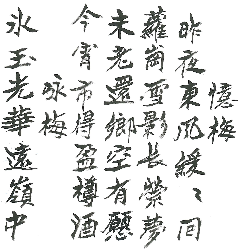 憶梅
昨夜東風緩〻回
蘿崗雪影長縈夢
未老還鄉空有願
今宵市得盈樽酒
詠梅
冰玉光華遠嶺中